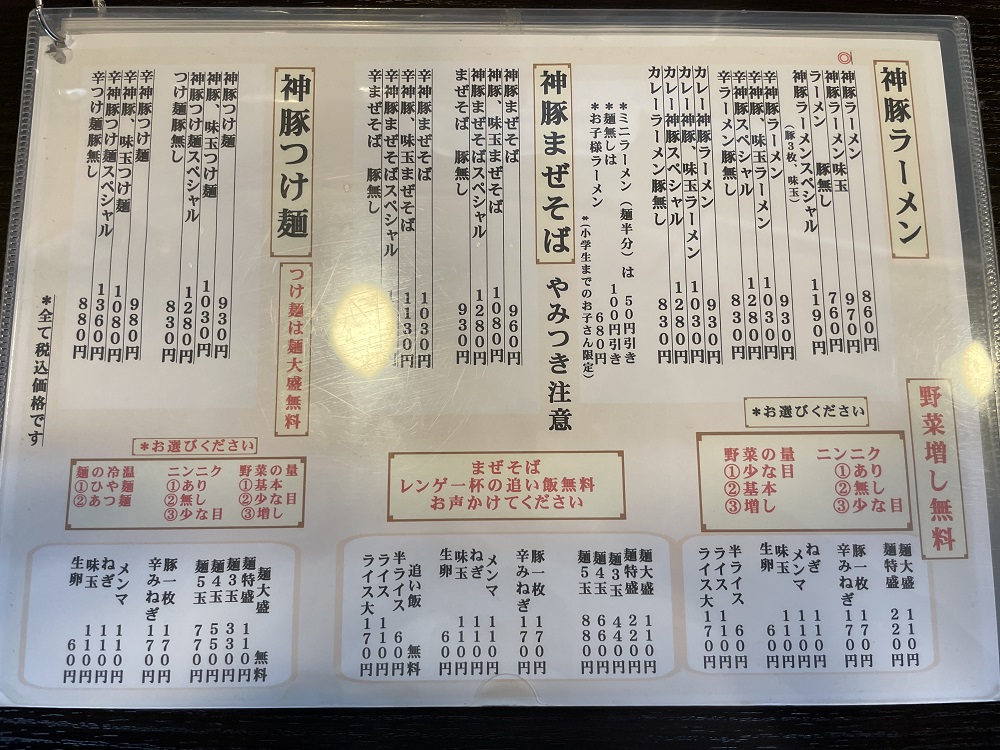 神豚ラーメン
◎
神豚ラーメン 860円
神豚ラーメン味玉 970円
ラーメン 豚無し 760円
神豚ラーメンスペシャル 1190円
(豚3枚、味玉)
辛神豚ラーメン 930円
辛神豚、味玉ラーメン 1030円
辛神豚スペシャル 1280円
辛ラーメン豚無し 830円
カレー神豚ラーメン 930円
カレー神豚、味玉ラーメン 1030円
カレー神豚スペシャル 1280円
カレーラーメン豚無し 830円
*ミニラーメン(麺半分)は 50円引き
*麺無しは 100円引き
*お子様ラーメン 680円
*(小学生までのお子さん限定)
野菜増し無料
*お選びください
ニンニク
①あり
②無し
③少な目
野菜の量
①少な目
②基本
③増し
麺大盛 110円
麺特盛 220円
豚一枚 170円
辛みねぎ 170円
ねぎ 110円
メンマ 110円
味玉 110円
生卵 60円
半ライス 60円
ライス 110円
ライス大 170円
神豚まぜそば やみつき注意
神豚まぜそば 960円
神豚、味玉まぜそば 1080円
神豚まぜそばスペシャル 1280円
まぜそば 豚無し 930円
辛神豚まぜそば 1030円
辛神豚、味玉まぜそば 1130円
辛神豚まぜそばスペシャル
辛まぜそば 豚無し
まぜそば
レンゲ一杯の追い飯無料
お声かけてください
麺大盛 110円
麺特盛 220円
麺3玉 440円
麺4玉 660円
麺5玉 880円
豚一枚 170円
辛みねぎ 170円
メンマ 110円
ねぎ 110円
味玉 110円
生卵 60円
追い飯 無料
半ライス 60円
ライス 110円
ライス大 170円
神豚つけ麺
つけ麺は麺大盛無料
神豚つけ麺 930円
神豚、味玉つけ麺 1030円
神豚つけ麺スペシャル 1280円
つけ麺豚無し 830円
辛神豚つけ麺 980円
辛神豚、味玉つけ麺 1080円
辛神豚つけ麺スペシャル 1360円
辛つけ麺豚無し 880円
*全て税込価格です
*お選びください
野菜の量
①基本
②少な目
③増し
ニンニク
①あり
②無し
③少な目
麺の冷温
①ひや麺
②あつ麺
麺大盛 無料
麺特盛 110円
麺3玉 330円
麺4玉 550円
麺5玉 770円
豚一枚 170円
辛みねぎ 170円
メンマ 110円
ねぎ 110円
味玉 110円
生卵 60円